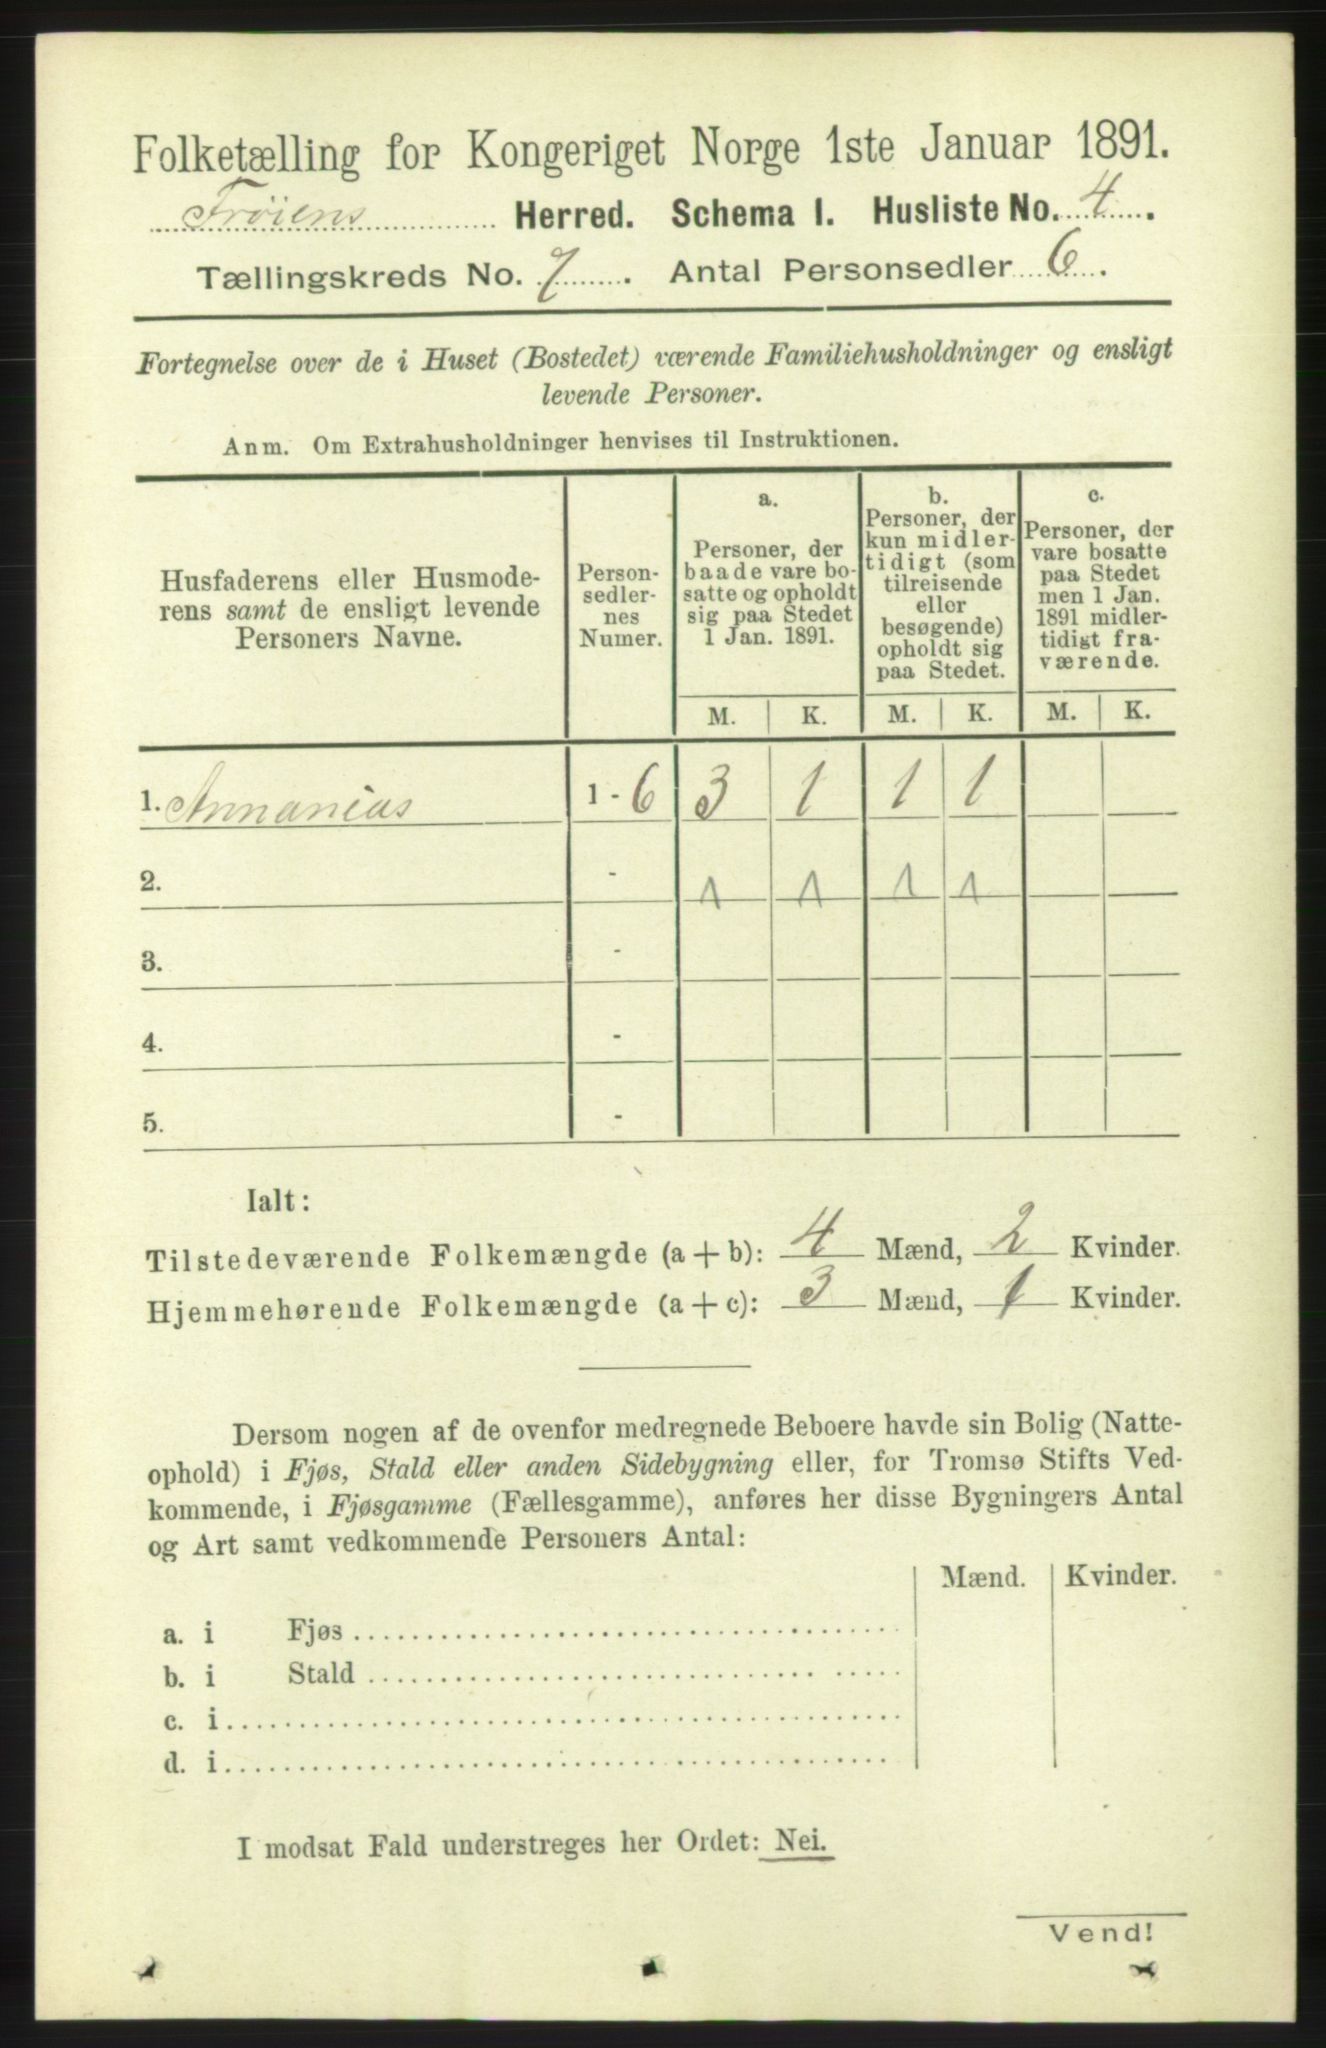 Folketælling for Kongeriget Norge 1ste Januar 1891.
Frøiens Herred. Schema 1. Husliste No. 4.
Tællingskreds No. 7. Antal Personsedler 6.
Fortegnelse over de i Huset (Bostedet) værende Familiehusholdninger og ensligt
levende Personer.
Anm. Om Extrahusholdninger henvises til Instruktionen.
Husfaderens eller Husmode-
rens samt de ensligt levende
Personers Navne.
Person-
sedler-
nes
Numer.
a.
Personer, der
baade vare bo-
satte og opholdt
sig paa Stedet
1 Jan. 1891.
b.
Personer, der
kun midler-
tidigt (som
tilreisende
eller
besøgende)
opholdt sig
paa Stedet.
c.
Personer, der
vare bosatte
paa Stedet
men 1 Jan.
1891 midler-
tidigt fra-
værende.
M. K. M. K. M. K.
1. Annanias 1 - 6 3 1 1 1
2. - 1 1 1 1
3. -
4. -
5. -
Ialt:
Tilstedeværende Folkemængde (a + b): 4 Mænd, 2 Kvinder.
Hjemmehørende Folkemængde (a + c): 3 Mænd, 1 Kvinder.
Dersom nogen af de ovenfor medregnede Beboere havde sin Bolig (Natte-
ophold) i Fjøs, Stald eller anden Sidebygning eller, for Tromsø Stifts Ved-
kommende, i Fjøsgamme (Fællesgamme), anføres her disse Bygningers Antal
og Art samt vedkommende Personers Antal:
Mænd. Kvinder.
a. i Fjøs
b. i Stald
c. i
d. i
I modsat Fald understreges her Ordet: Nei.
Vend!